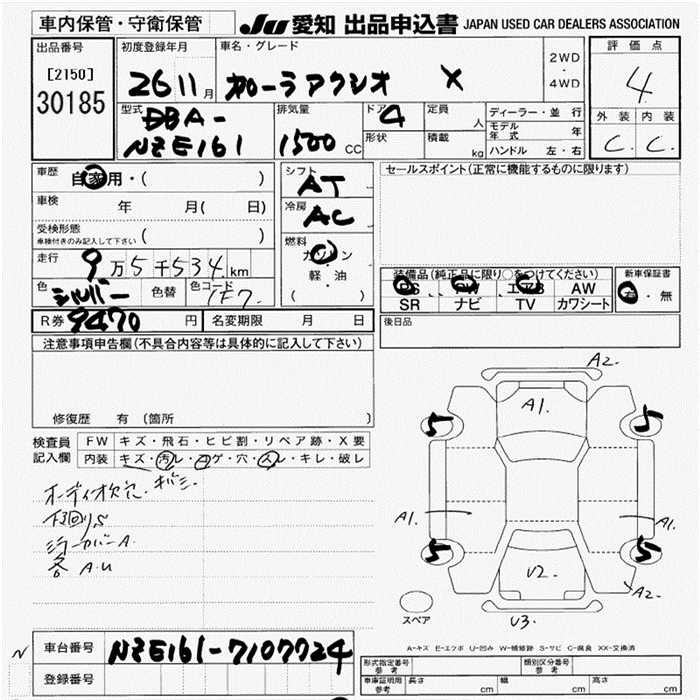 車内保管・守衛保管
JU 愛知 出品申込書 JAPAN USED CAR DEALERS ASSOCIATION
出品番号
[2150]
30185
初度登録年月
26 11月
車名・グレード
カローラアクシオ X
2WD
・
4WD
評価点
4
外装 内装
C. C.
型式
DBA-
NZE161
排気量
1500 CC
ドア
4
形状
定員
人
積載
kg
ディーラー・並行
モデル年式 年
ハンドル 左・右
車歴
自家用・( )
車検 年 月( 日)
受検形態
車検付きのみ記入して下さい ( )
走行
9万5千534km
色
シルバー
色替
色コード
1F7
シフト
AT
冷房
AC
燃料
ガソリン
・
軽・油
( )
R券 9470 円
名変期限 月 日
セールスポイント(正常に機能するものに限ります)
装備品(純正品に限り○をつけてください)
PS PW エアB AW
SR ナビ TV カワシート
新車保証書
有・無
後日品
注意事項申告欄(不具合内容等は具体的に記入して下さい)
修復歴 有 (箇所 )
検査員
記入欄
FW キズ・飛石・ヒビ割・リペア跡・X要
内装 キズ・汚レ・コゲ・穴・スレ・キレ・破レ
オーディオ欠穴・キバミ
下回りS
ミラーカバーA
各A.U
A2.
A1.
5
5
A1.
A1.
5
5
V2.
A2
V3.
スペア
A-キズ E-エクボ U-凹み W-補修跡 S-サビ C-腐食 XX-交換済
N
車台番号 NZE161-7107724
登録番号
形式指定番号
参考
類別区分番号
参考
車庫証明用
参考
長さ cm
幅 cm
高さ cm